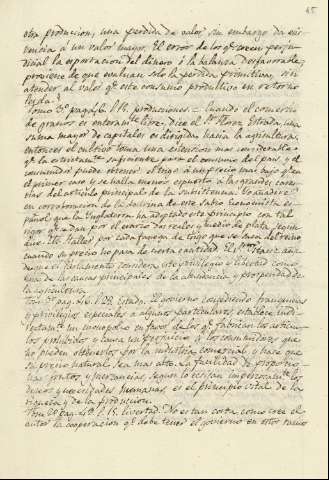 45
otra produccion, una perdida de valor sin embargo da exis-
tencia á un valor mayor. El error de los qe. creen perju-
dicial la esportacion del dinero ó la balanza desfavorable,
proviene de que evaluan solo la perdida primitiva, sin
atender al valor qe. este consumo productivo en retorno
Tomo 2º. pag. 6. producciones = Cuando el comercio
de granos es enteramte. libre, dice el Sr. Florez Estrada, una
suma mayor de capitales es dirigida hacia la agricultura,
entonces el cultivo toma una estension mas considerable
qe. la estrictamte. suficiente para el consumo del pais, y el
consumidor puede obtener el trigo á un precio mas bajo qe. en
el primer caso y se halla menos espuesto á la grande
del articulo principal de la subsistencia. Se añadirá
en corroboracion de la doctrina de este sabio Economista es-
pañol que la Inglaterra ha adoptado este principio con tal
rigor qe. dos reales y medio de plata, segun
por cada fanega de trigo que se saca del reino
cuando su precio no pasa de cierta cantidad. El
que el Parlamento considera este privilegio y libertad como
una de las causas principales de la abundancia y prosperidad de
la agricultura.
pag. 26. Estado. El gobierno concediendo franquicias
y privilegios especiales a algunos particulares, establece indi-
rectamte. un monopolio en favor de los qe. fabrican los articu-
los prohibidos y causa un perjuicio á los consumidores que
no pueden obtenerlos por la industria comercial y hace que
su precio natural sea mas alto. La facultad de proporcio-
nar frutos y mercancias, segun lo ecsijan imperiosamte. los
deseos y necesidades humanas, es el principio vital de la
riqueza y de la produccion.
Tomo 2º. pag. 49. L. 15. libertad. No es tan corta como cree el
autor la cooperacion qe. debe tener el gobierno en este ramo